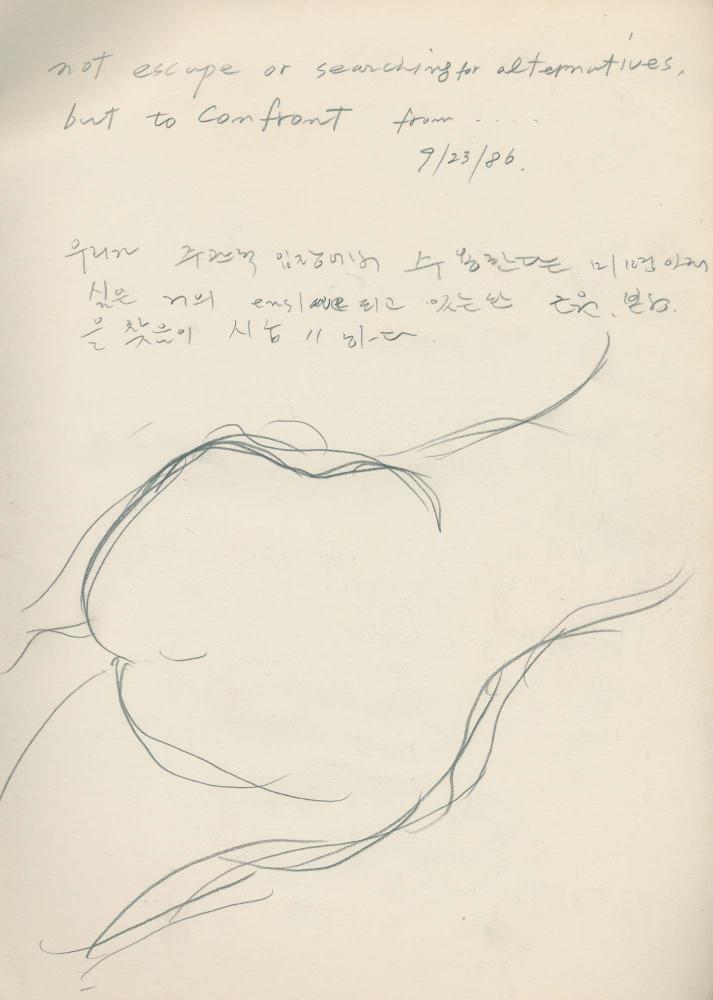 not escape or searching for alternatives,
but to Confront from ....
9/23/86.
우리가 주관적 입장에서 수용한다는 미명아래
실은 enslave 되고 있는
을 찾음이 시급 〃 하다.